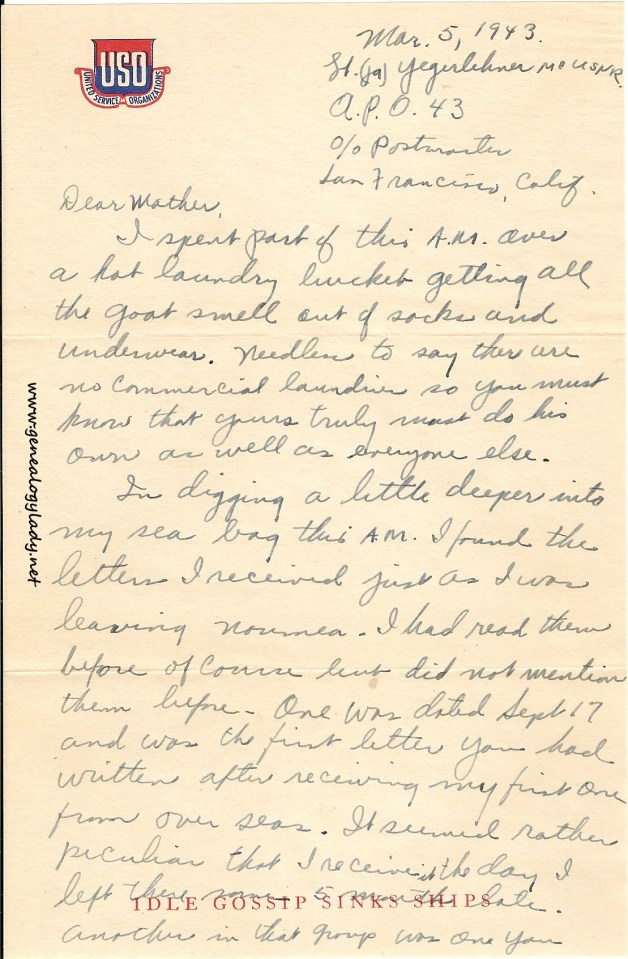 USO
UNITED SERVICE ORGANIZATIONS
Mar. 5, 1943.
Lt. (jg) Yegerlehner MC USNR.
A.P.O. 43
c/o Postmaster
San Francisco, Calif.
Dear Mother,
I spent part of this A.M. over
a hot laundry bucket getting all
the goat smell out of socks and
underwear. Needless to say there are
no commercial laundries so you must
know that yours truly must do his
own as well as everyone else.
In digging a little deeper into
my sea bag this A.M. I found the
letters I received just as I was
leaving Noumea. I had read them
before of course but did not mention
them before - One was dated Sept 17
and was the first letter you had
written after receiving my first one
from over seas. It seemed rather
peculiar that I receive it the day I
left there some 5 months late.
another in that group was one you
IDLE GOSSIP SINKS SHIPS
www.genealogylady.net